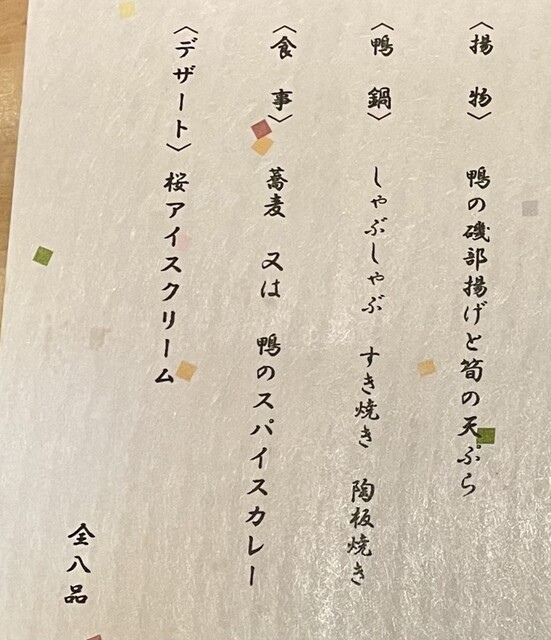 〈揚物〉 鴨の磯部揚げと筍の天ぷら
〈鴨鍋〉 しゃぶしゃぶ すき焼き 陶板焼き
〈食事〉 蕎麦 又は 鴨のスパイスカレー
〈デザート〉 桜アイスクリーム
全八品